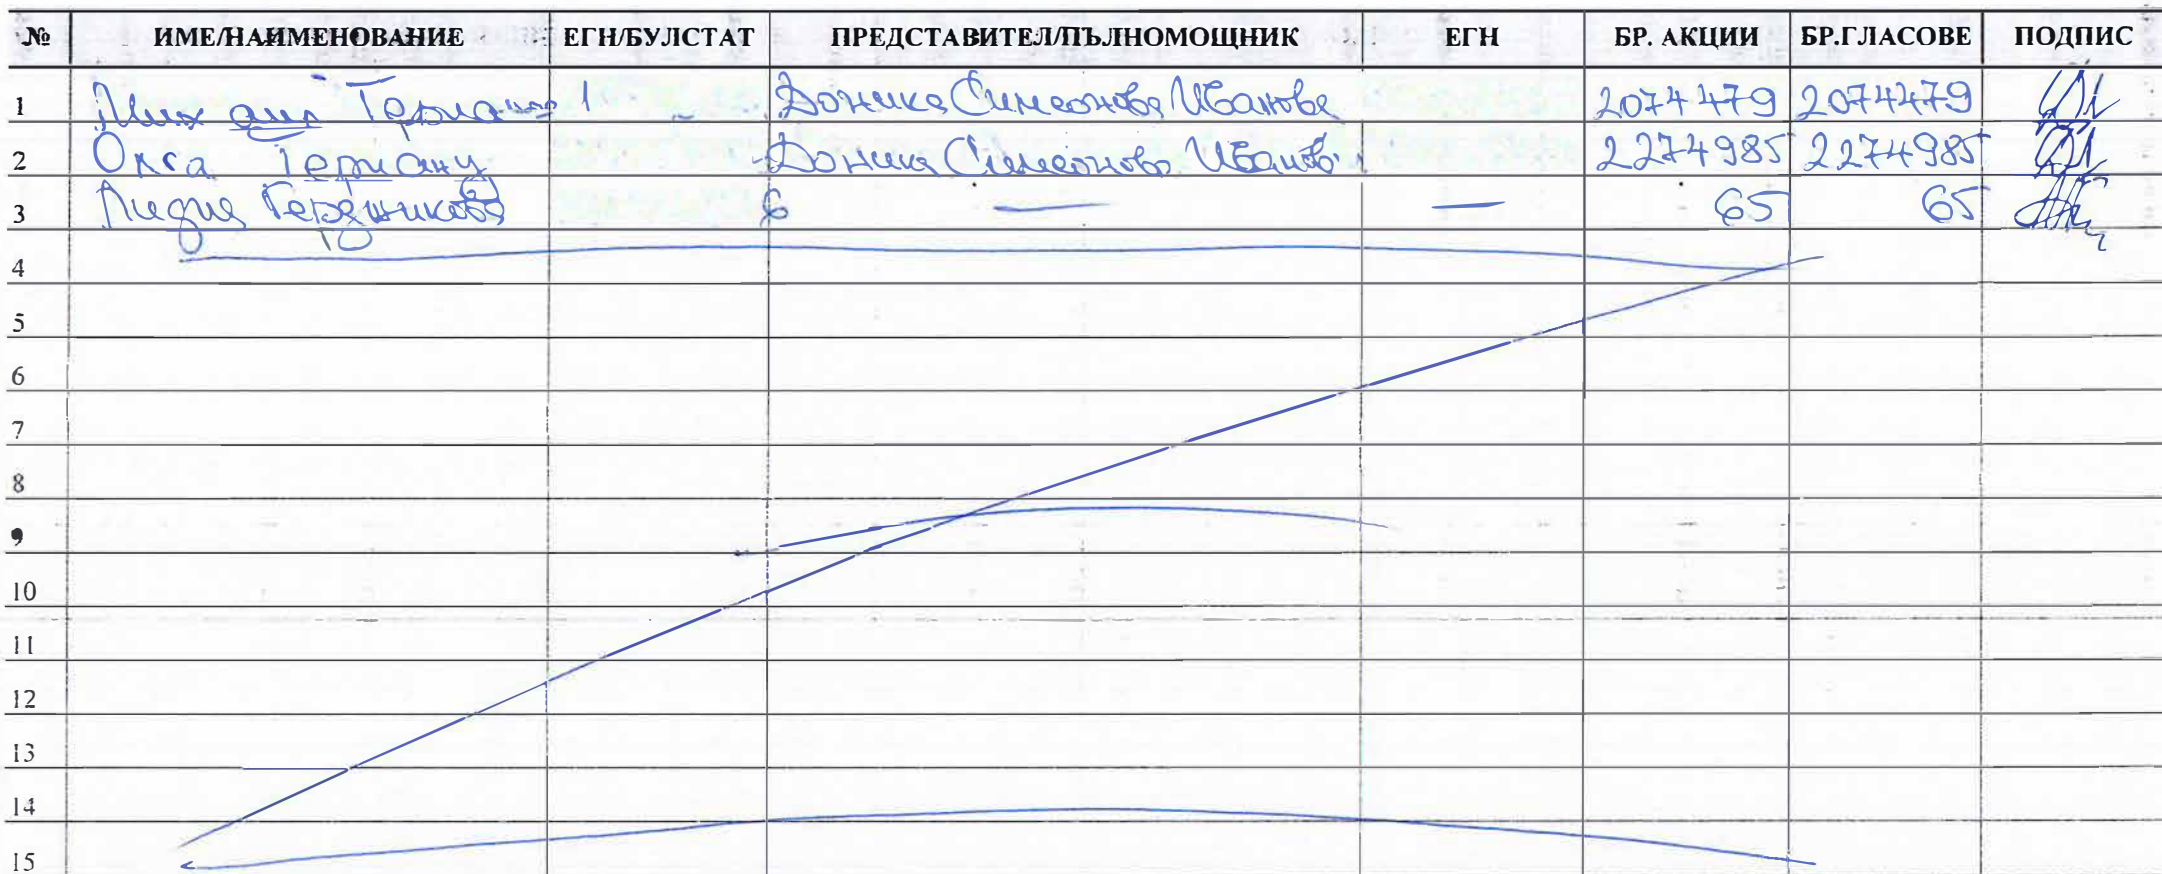 № ИМЕ/НАИМЕНОВАНИЕ ЕГН/БУЛСТАТ ПРЕДСТАВИТЕЛ/ПЪЛНОМОЩНИК ЕГН БР. АКЦИИ БР.ГЛАСОВЕ ПОДПИС
1 Доника Симеонова Иванова 2074479 2074479
2 Олга Доника Симеонова Иванова 2274985 2274985
3 Лидия — — 65 65
4
5
6
7
8
9
10
11
12
13
14
15